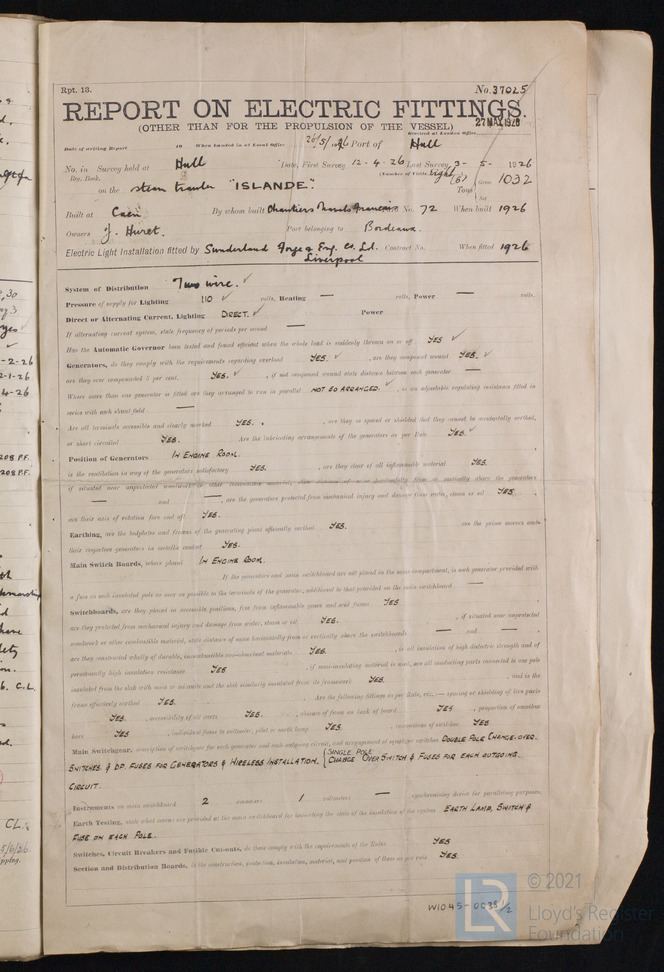 Rpt. 13.
No. 37025
REPORT ON ELECTRIC FITTINGS.
27 MAY 1926
(OTHER THAN FOR THE PROPULSION OF THE VESSEL)
Received at London Office
Date of writing Report 19 When handed in at Local Office 26/5/1926 Port of Hull
No. in Survey held at Hull Date, First Survey 12-4-26 Last Survey 3-5-1926
Reg. Book. (Number of Visits eight (8))
on the steam trawler "ISLANDE". Tons Gross 1032
Net
Built at Caen By whom built Chantiers Navals Francais No. 72 When built 1926
Owners J. Huret. Port belonging to Bordeaux.
Electric Light Installation fitted by Sunderland Forge & Eng. Co. Ld. Contract No. When fitted 1926
Liverpool
System of Distribution Two wire. ✓
Pressure of supply for Lighting 110 ✓ volts, Heating — volts, Power — volts.
Direct or Alternating Current, Lighting DIRECT. ✓ Power
If alternating current, state frequency of periods per second —
Has the Automatic Governor been tested and found efficient when the whole load is suddenly thrown on or off YES ✓
Generators, do they comply with the requirements regarding overload YES. ✓, are they compound wound YES. ✓
are they over compounded 5 per cent. YES. ✓, if not compound wound state distance between each generator —
Where more than one generator is fitted are they arranged to run in parallel NOT SO ARRANGED. ✓, is an adjustable regulating resistance fitted in
series with each shunt field —
Are all terminals accessible and clearly marked YES., are they so spaced or shielded that they cannot be accidentally earthed,
or short circuited YES. Are the lubricating arrangements of the generators as per Rule YES. ✓
Position of Generators IN ENGINE ROOM.
is the ventilation in way of the generators satisfactory YES., are they clear of all inflammable material YES.
if situated near unprotected woodwork or other combustible material, state distance of same horizontally from or vertically above the generators
— and —, are the generators protected from mechanical injury and damage from water, steam or oil YES.
are their axes of rotation fore and aft YES.
Earthing, are the bedplates and frames of the generating plant efficiently earthed YES. are the prime movers and
their respective generators in metallic contact YES.
Main Switch Boards, where placed IN ENGINE ROOM.
If the generators and main switchboard are not placed in the same compartment, is each generator provided with
a fuse on each insulated pole as near as possible to the terminals of the generator, additional to that provided on the main switchboard —
Switchboards, are they placed in accessible positions, free from inflammable gases and acid fumes YES
are they protected from mechanical injury and damage from water, steam or oil YES., if situated near unprotected
woodwork or other combustible material, state distance of same horizontally from or vertically above the switchboards — and —
are they constructed wholly of durable, incombustible non-absorbent materials YES., is all insulation of high dielectric strength and of
permanently high insulation resistance YES, if semi-insulating material is used, are all conducting parts connected to one pole
insulated from the slab with mica or micanite and the slab similarly insulated from its framework YES., and is the
frame effectively earthed YES. Are the following fittings as per Rule, viz. — spacing or shielding of live parts
YES., accessibility of all parts YES., absence of fuses on back of board YES, proportion of omnibus
bars YES, individual fuses to voltmeter, pilot or earth lamp YES., connections of switches YES
Main Switchgear, description of switchgear for each generator and each outgoing circuit, and arrangement of equaliser switches DOUBLE POLE CHANGE-OVER.
SWITCHES & D.P. FUSES FOR GENERATORS & WIRELESS INSTALLATION. { SINGLE POLE CHANGE OVER SWITCH & FUSES FOR EACH OUTGOING.
CIRCUIT.
Instruments on main switchboard 2 ammeters 1 voltmeters — synchronising device for paralleling purposes.
Earth Testing, state what means are provided at the main switchboard for indicating the state of the insulation of the system EARTH LAMP, SWITCH &
FUSE ON EACH POLE.
Switches, Circuit Breakers and Fusible Cut-outs, do these comply with the requirements of the Rules YES
Section and Distribution Boards, is the construction, protection, insulation, material, and position of these as per rule YES.
W1045-0038 1/2
LR
© 2021
Lloyd's Register
Foundation